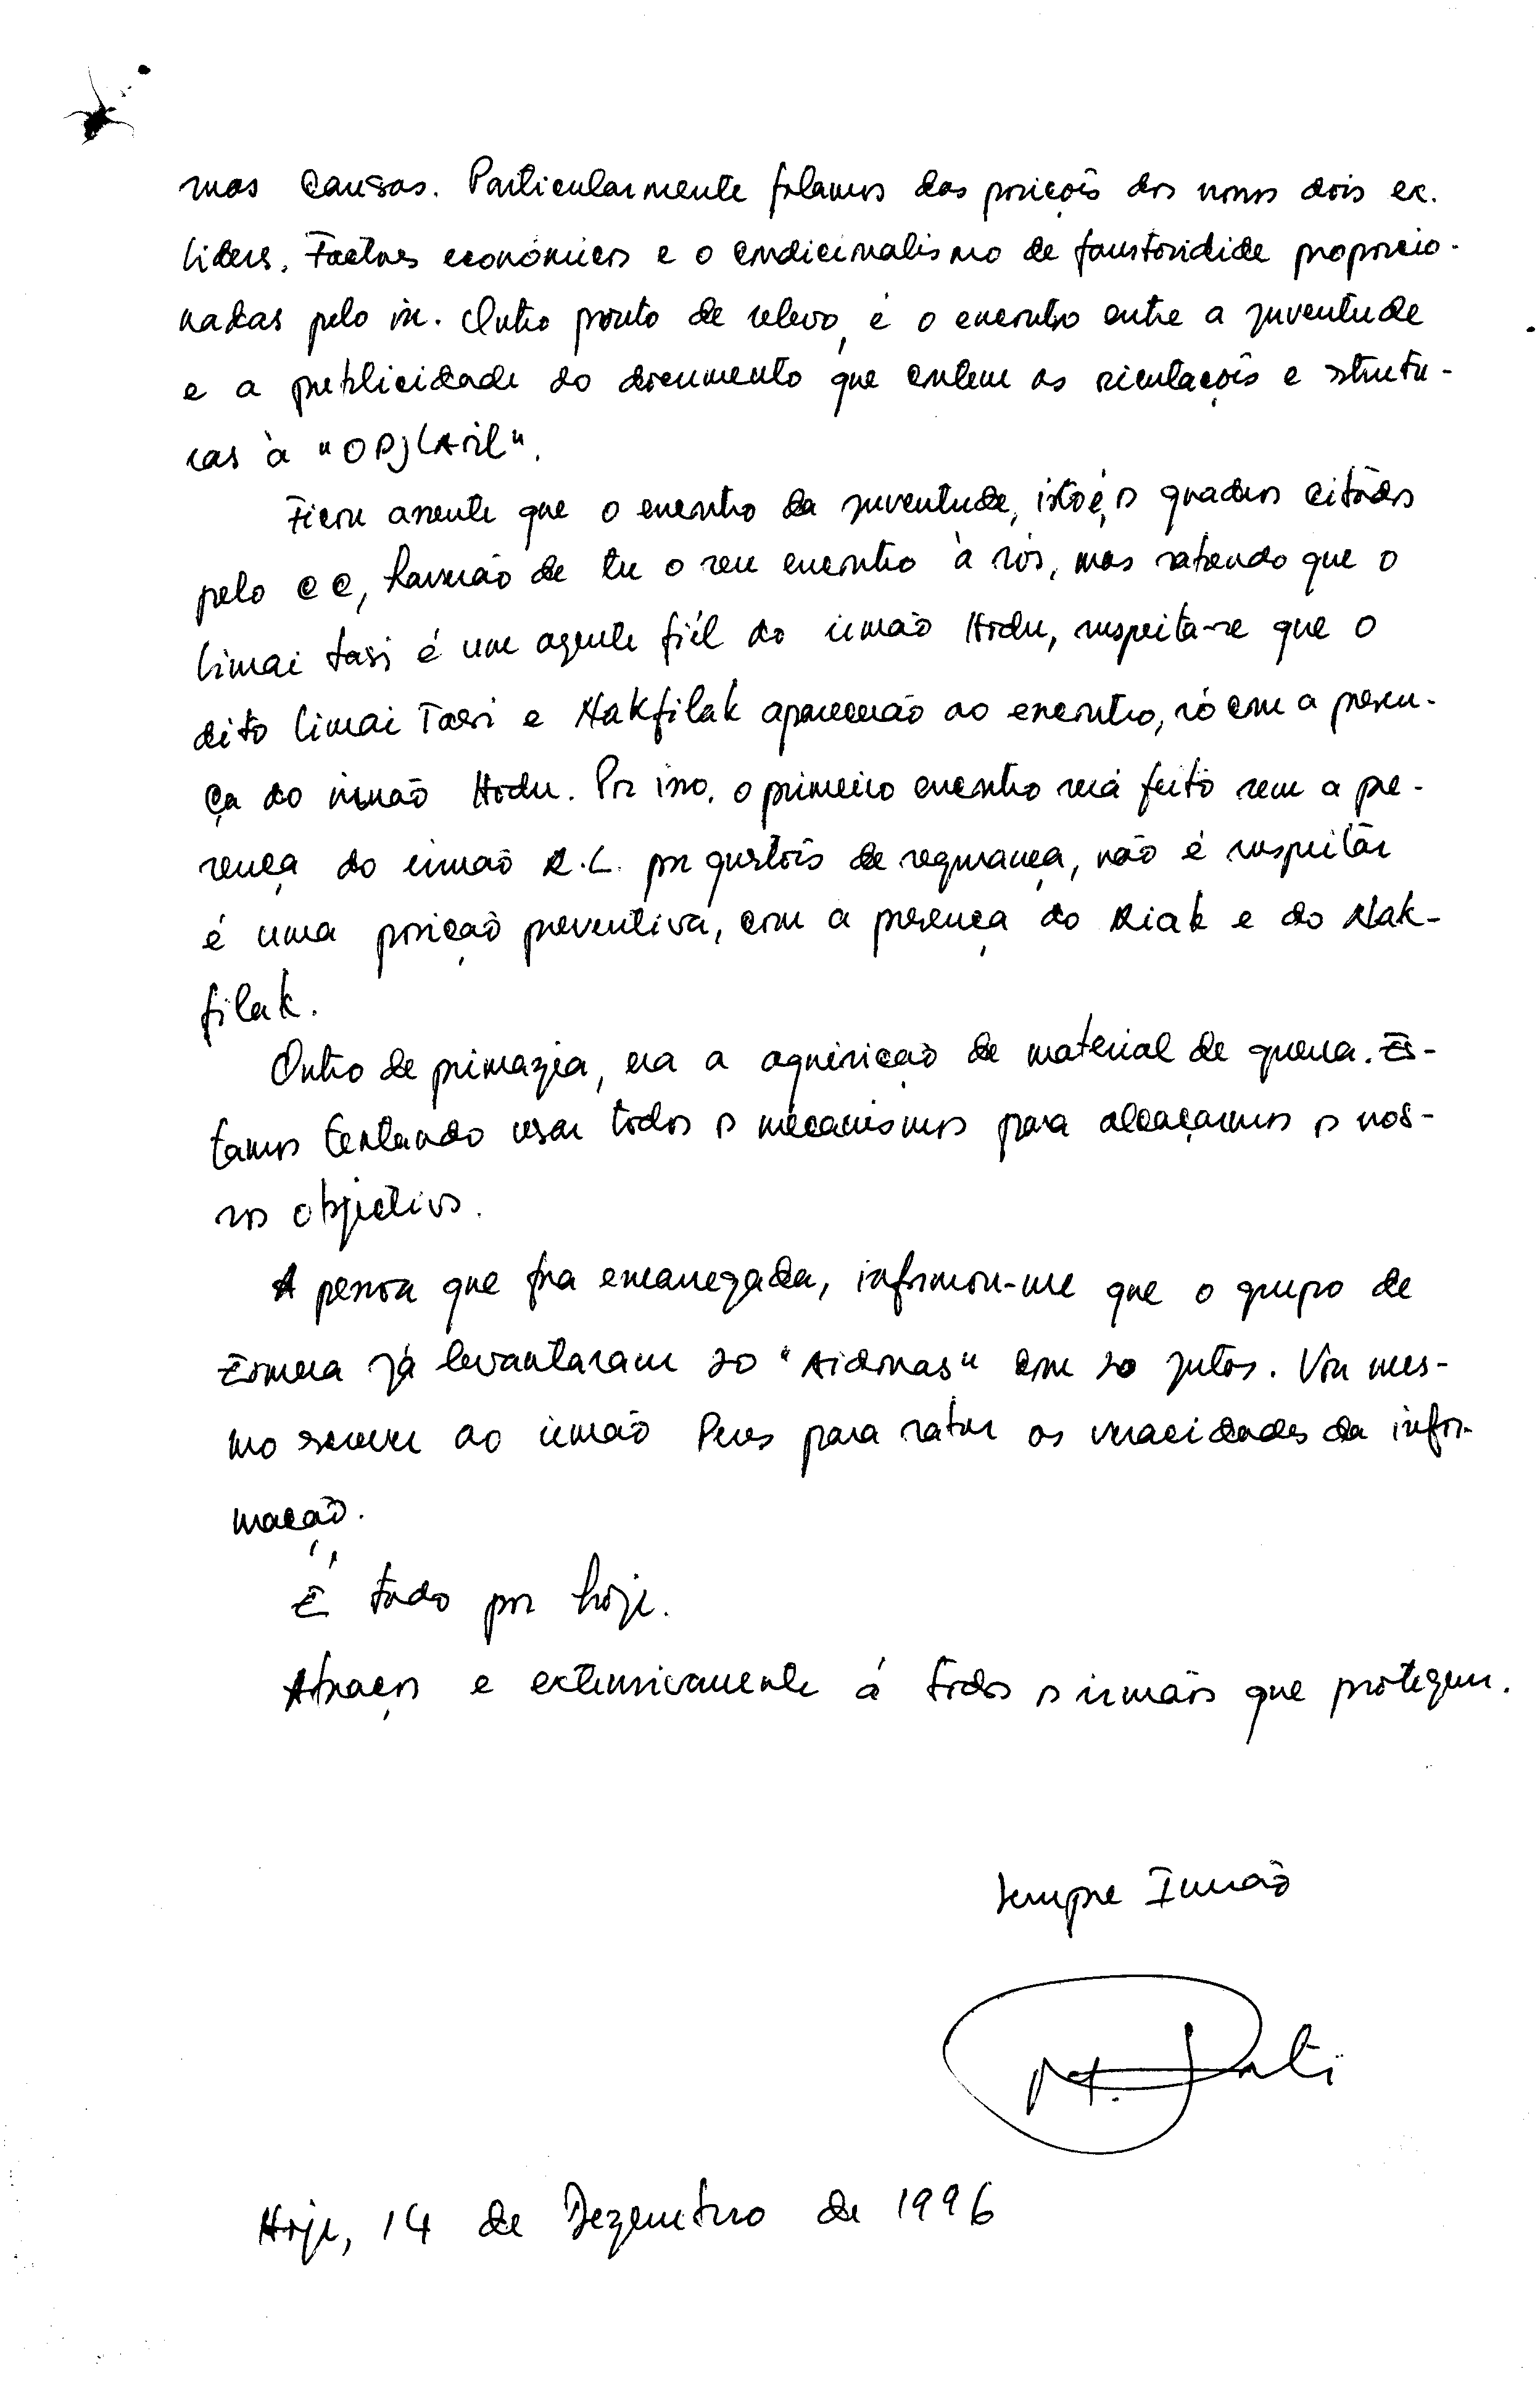 mas causas. Particularmente falamos das posições dos nossos dois ex.
liders. Factores económicos e o condicionalismo de faustoridide proporcio-
nadas pelo in. Outro ponto de relevo, é o encontro entre a juventude
e a publicidade do documento que contem as orientações e strutu-
ras à "OPJLATIL".
Ficou assente que o encontro da juventude, isto é, os quadros citados
pelo CC, haverão de ter o seu encontro à sós, mas sabendo que o
Limai Tasi é um agente fiél do irmão Hodu, suspeita-se que o
dito Limai Tasi e Nakfilak aparecerão ao encontro, só com a presen-
ça do irmão Hodu. Por isso, o primeiro encontro será feito sem a pre-
sença do irmão R.L. por questões de segurança, não é suspeitar
é uma posição preventiva, com a presença do Riak e do Nak-
filak.
Outro de primazia, era a aquisição de material de guerra. Es-
tamos tentando usar todos os mécanismos para alcaçarmos os nos-
sos objectivos.
A pessoa que fora encarregada, informou-me que o grupo de
Ermera já levantaram 20 "Aidonas" com 10 jutas. Vou mes-
mo screver ao irmão Peres para saber as veracidades da infor-
mação.
É tudo por hoje.
Abraços e extensivamente á todos os irmãos que protegem.
Sempre Irmão
Hoje, 14 de Dezembro de 1996